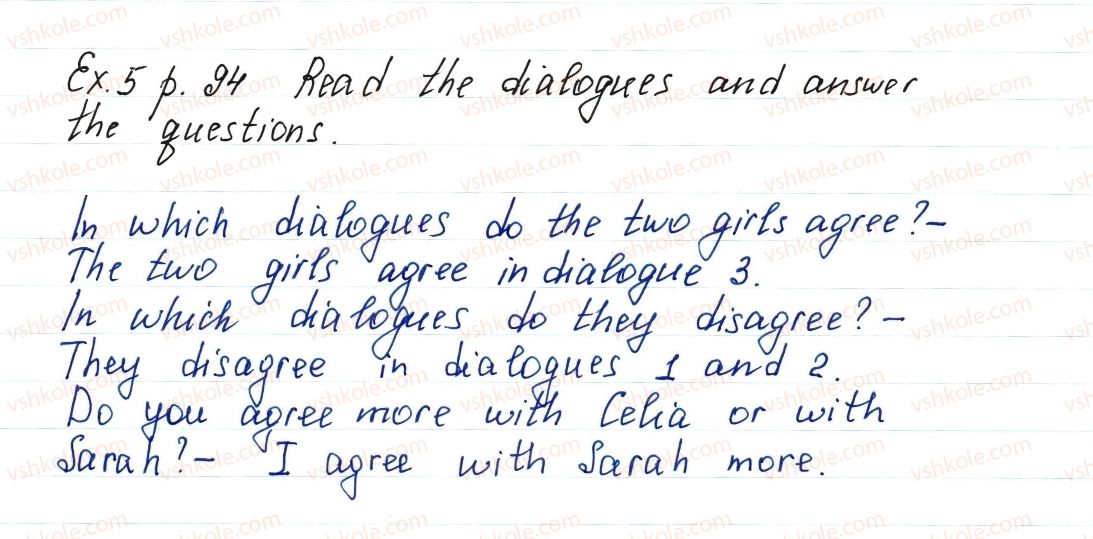 Ex. 5 p. 94 Read the dialogues and answer
the questions.
In which dialogues do the two girls agree? –
The two girls agree in dialogue 3.
In which dialogues do they disagree? –
They disagree in dialogues 1 and 2.
Do you agree more with Celia or with
Sarah? – I agree with Sarah more.
vshkole.com